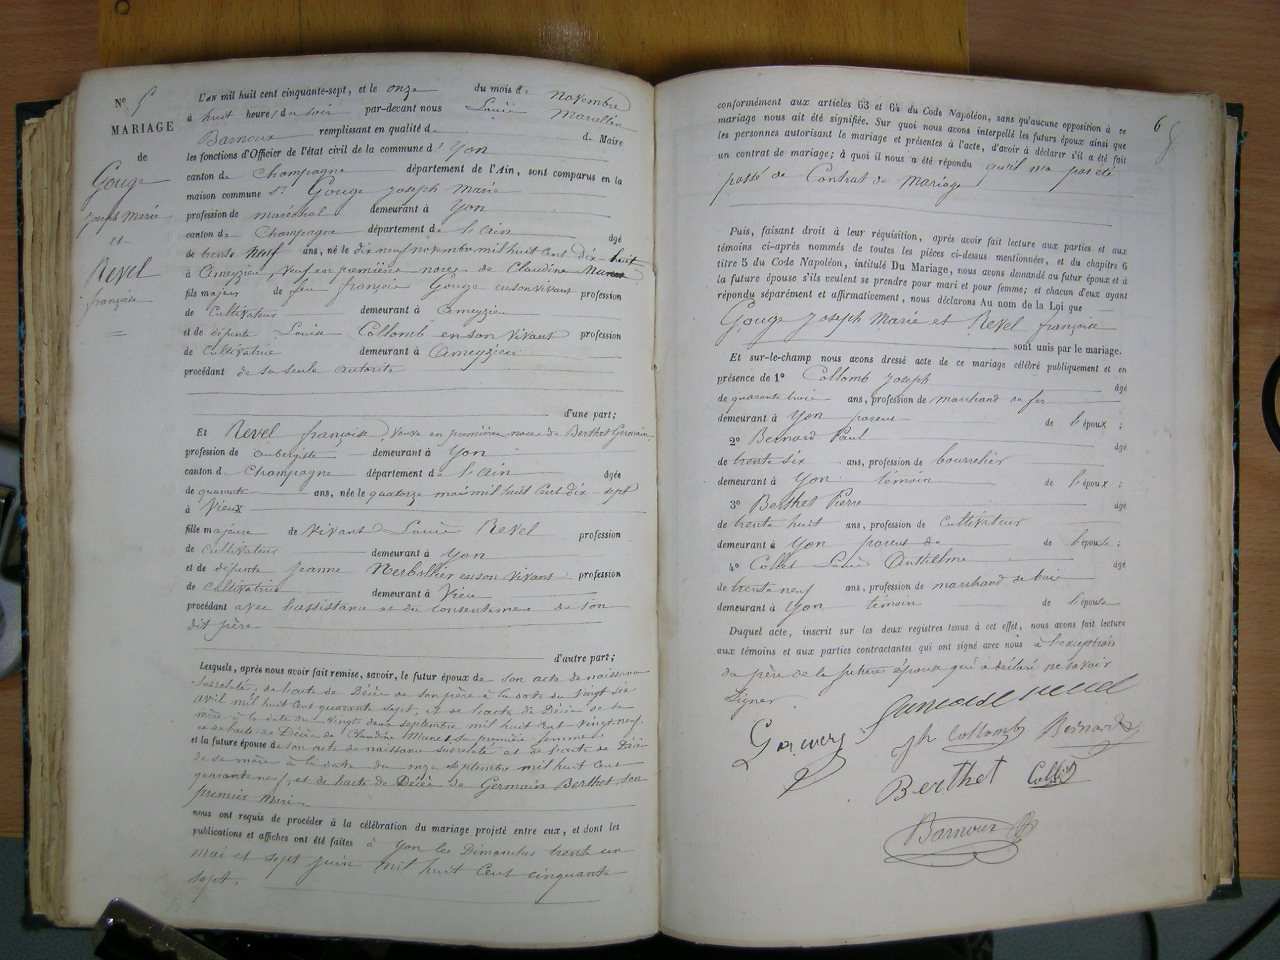 N° 5
MARIAGE
de
Gouge
Joseph Marie
et
Revel
françoise
L'an mil huit cent cinquante-sept, et le onze du mois de novembre
à huit heures du soir par-devant nous Louis Marcellin
Barnoux remplissant en qualité de Maire
les fonctions d'Officier de l'état civil de la commune d'Yon
canton de Champagne département de l'Ain, sont comparus en la
maison commune Sr Gouge Joseph Marie
profession de maréchal demeurant à Yon
canton de Champagne département de l'ain âgé
de trente neuf ans, né le dix neuf novembre mil huit cent dix-huit
à Ameyzieu, veuf en premières noces de Claudine
fils majeur de feu françois Gouge en son vivant profession
de Cultivateur demeurant à Ameyzieu
et de défunte Louise Collomb en son vivant profession
de Cultivatrice demeurant à Ameyzieu
procédant de sa seule autorité
d'une part;
Et Revel françoise, veuve en premières noces de Berthet Germain
profession de aubergiste demeurant à Yon
canton de Champagne département de l'ain âgée
de quarante ans, née le quatorze mai mil huit cent dix-sept
à Vieux
fille majeure de vivant Louis Revel profession
de Cultivateur demeurant à Yon
et de défunte Jeanne en son vivant profession
de Cultivatrice demeurant à Vieu
procédant avec l'assistance et du consentement de son
dit père
d'autre part;
Lesquels, après nous avoir fait remise, savoir, le futur époux de son acte de naissance
susrelaté, de l'acte de Décès de son père à la date du vingt six
avril mil huit cent quarante sept, et de l'acte de Décès de sa
mère à la date du vingt deux septembre mil huit cent vingt neuf
et de l'acte de Décès de Claudine sa première femme
et la future épouse de son acte de naissance susrelaté et de l'acte de Décès
de sa mère à la date du onze septembre mil huit cent
quarante neuf, et de l'acte de Décès de Germain Berthet son
premier mari
nous ont requis de procéder à la célébration du mariage projeté entre eux, et dont les
publications et affiches ont été faites à Yon les Dimanches trente un
mai et sept juin mil huit cent cinquante
sept.
6
conformément aux articles 63 et 64 du Code Napoléon, sans qu'aucune opposition à ce
mariage nous ait été signifiée. Sur quoi nous avons interpellé les futurs époux ainsi que
les personnes autorisant le mariage et présentes à l'acte, d'avoir à déclarer s'il a été fait
un contrat de mariage; à quoi il nous a été répondu qu'il n'a pas été
passé de Contrat de mariage
Puis, faisant droit à leur réquisition, après avoir fait lecture aux parties et aux
témoins ci-après nommés de toutes les pièces ci-dessus mentionnées, et du chapitre 6
titre 5 du Code Napoléon, intitulé Du Mariage, nous avons demandé au futur époux et à
la future épouse s'ils veulent se prendre pour mari et pour femme; et chacun d'eux ayant
répondu séparément et affirmativement, nous déclarons Au nom de la Loi que
Gouge Joseph Marie et Revel françoise
sont unis par le mariage.
Et sur-le-champ nous avons dressé acte de ce mariage célébré publiquement et en
présence de 1° Collomb Joseph âgé
de quarante trois ans, profession de marchand de fer
demeurant à Yon parent de l'époux;
2° Bernard Paul âgé
de trente six ans, profession de bourrelier
demeurant à Yon témoin de l'époux;
3° Berthet Pierre âgé
de trente huit ans, profession de Cultivateur
demeurant à Yon parent de de l'épouse;
4° Collet Louis Anthelme âgé
de trente neuf ans, profession de marchand de bois
demeurant à Yon témoin de l'épouse
Duquel acte, inscrit sur les deux registres tenus à cet effet, nous avons fait lecture
aux témoins et aux parties contractantes qui ont signé avec nous à l'exception
du père de la future épouse qui a déclaré ne savoir
signer
jh Collomb Bernard
Berthet Collet
Barnoux